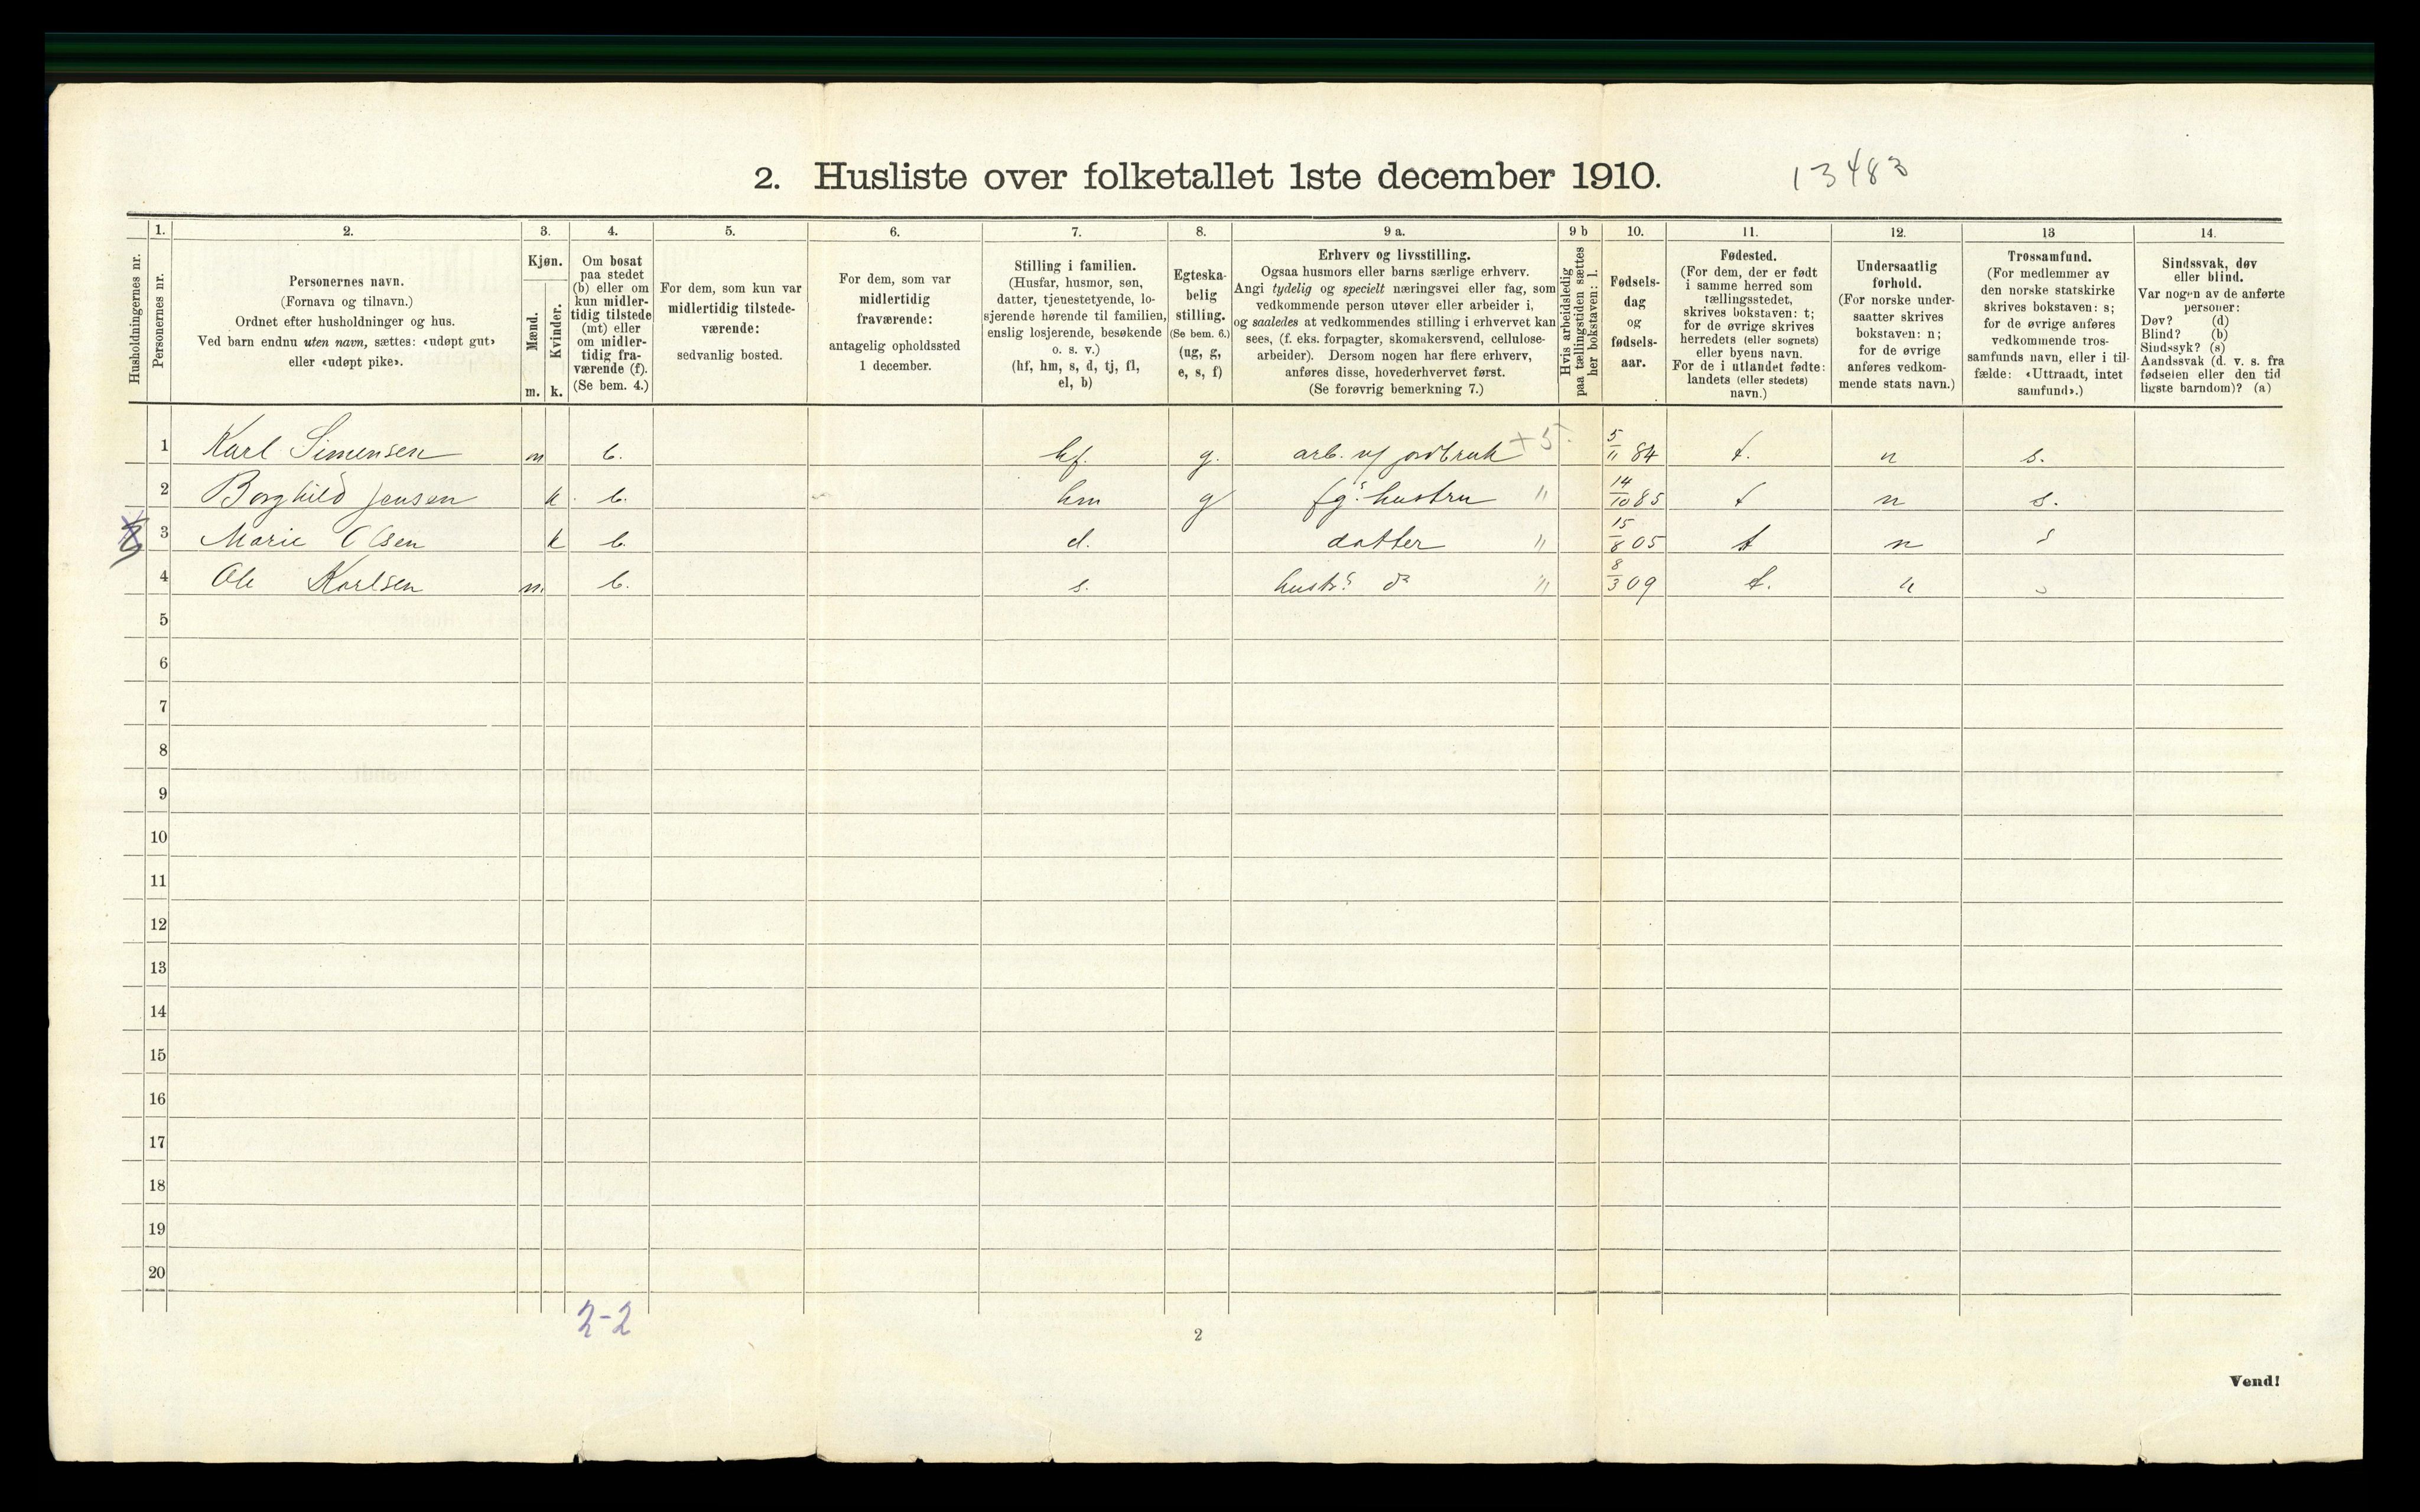 2. Husliste over folketallet 1ste december 1910.
13483
Husholdningernes nr.
1.
Personernes nr.
2.
Personernes navn.
(Fornavn og tilnavn.)
Ordnet efter husholdninger og hus.
Ved barn endnu uten navn, sættes: «udøpt gut»
eller «udøpt pike».
3.
Kjøn.
Mænd.
Kvinder.
m. k.
4.
Om bosat
paa stedet
(b) eller om
kun midler-
tidig tilstede
(mt) eller
om midler-
tidig fra-
værende (f).
(Se bem. 4.)
5.
For dem, som kun var
midlertidig tilstede-
værende:
sedvanlig bosted.
6.
For dem, som var
midlertidig
fraværende:
antagelig opholdssted
1 december.
7.
Stilling i familien.
(Husfar, husmor, søn,
datter, tjenestetyende, lo-
sjerende hørende til familien,
enslig losjerende, besøkende
o. s. v.)
(hf, hm, s, d, tj, fl,
el, b)
8.
Egteska-
belig
stilling.
(Se bem. 6.)
(ug, g,
e, s, f)
9 a.
Erhverv og livsstilling.
Ogsaa husmors eller barns særlige erhverv.
Angi tydelig og specielt næringsvei eller fag, som
vedkommende person utøver eller arbeider i,
og saaledes at vedkommendes stilling i erhvervet kan
sees, (f. eks. forpagter, skomakersvend, cellulose-
arbeider). Dersom nogen har flere erhverv,
anføres disse, hovederhvervet først.
(Se forøvrig bemerkning 7.)
9 b
Hvis arbeidsledig
paa tællingstiden sættes
her bokstaven: l.
10.
Fødsels-
dag
og
fødsels-
aar.
11.
Fødested.
(For dem, der er født
i samme herred som
tællingsstedet,
skrives bokstaven: t;
for de øvrige skrives
herredets (eller sognets)
eller byens navn.
For de i utlandet fødte:
landets (eller stedets)
navn.)
12.
Undersaatlig
forhold.
(For norske under-
saatter skrives
bokstaven: n;
for de øvrige
anføres vedkom-
mende stats navn.)
13
Trossamfund.
(For medlemmer av
den norske statskirke
skrives bokstaven: s;
for de øvrige anføres
vedkommende tros-
samfunds navn, eller i til-
fælde: «Uttraadt, intet
samfund».)
14.
Sindssvak, døv
eller blind.
Var nogen av de anførte
personer:
Døv? (d)
Blind? (b)
Sindssyk? (s)
Aandssvak (d. v. s. fra
fødselen eller den tid
ligste barndom)? (a)
1 Karl Simensen m b. hf. g. arb. v/ jordbruk +5 5/11 84 t. n s.
2 Borghild Jensen k. b. hm g fg. hustru " 14/10 85 t n s.
3 Marie Olsen k b. d. datter " 15/8 05 t n s
4 Ole Karlsen m. b. s. do " 8/3 09 t. n s
5
6
7
8
9
10
11
12
13
14
15
16
17
18
19
20
2-2
2
Vend!